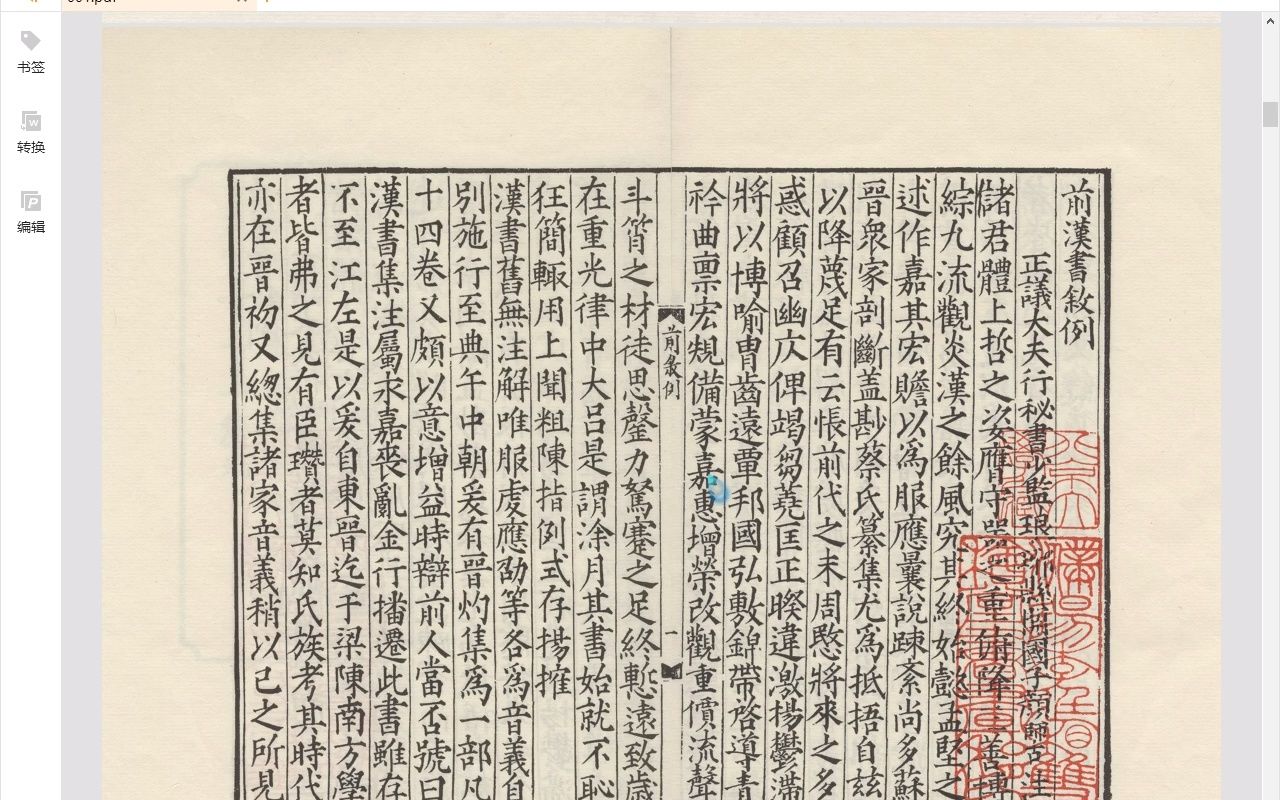 书签
转换
编辑
前漢書敘例
正議大夫行秘書少監琅邪縣開國子顏師古注
儲君體上哲之姿膺守器之重俯降善博
綜九流觀炎漢之餘風究其終始懿孟堅之
述作嘉其宏贍以為服應曩說疎紊尚多蘇
晉眾家剖斷蓋尠蔡氏纂集尤為抵捂自茲
以降蔑足有云悵前代之未周愍將來之多
惑顧召幽仄俾竭芻蕘匡正睽違激揚鬱滯
將以博喻胄齒遠覃邦國弘敷錦帶啓導青
衿曲稟宏規備蒙嘉惠增榮改觀重價流聲
前敘例
一
斗筲之材徒思罄力駑蹇之足終慙遠致歲
在重光律中大呂是謂涂月其書始就不恥
狂簡輒用上聞粗陳指例式存揚搉
漢書舊無注解唯服虔應劭等各為音義自
別施行至典午中朝爰有晉灼集為一部凡
十四卷又頗以意增益時辯前人當否號曰
漢書集注屬永嘉喪亂金行播遷此書雖存
不至江左是以爰自東晉迄于梁陳南方學
者皆弗之見有臣瓚者莫知氏族考其時代
亦在晉初又總集諸家音義稍以己之所見